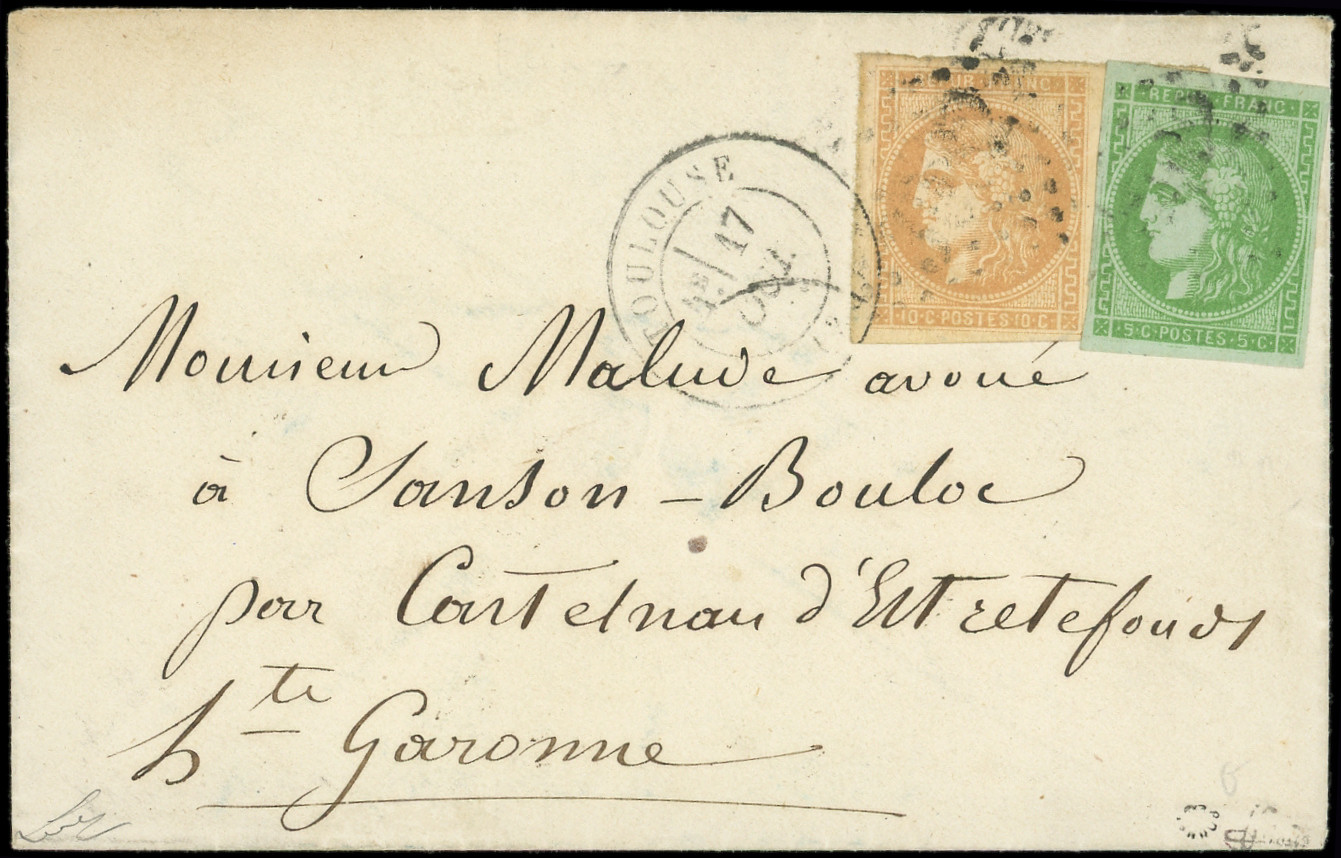 REPUB · FRANC ·
REPUB · FRANC ·
10 · C · POSTES · 10 · C ·
· 5 · C · POSTES · 5 · C ·
TOULOUSE
17
Monsieur Malude avoué
à Sanson - Bouloc
par Castelnau d'Estretefonds
hte Garonne